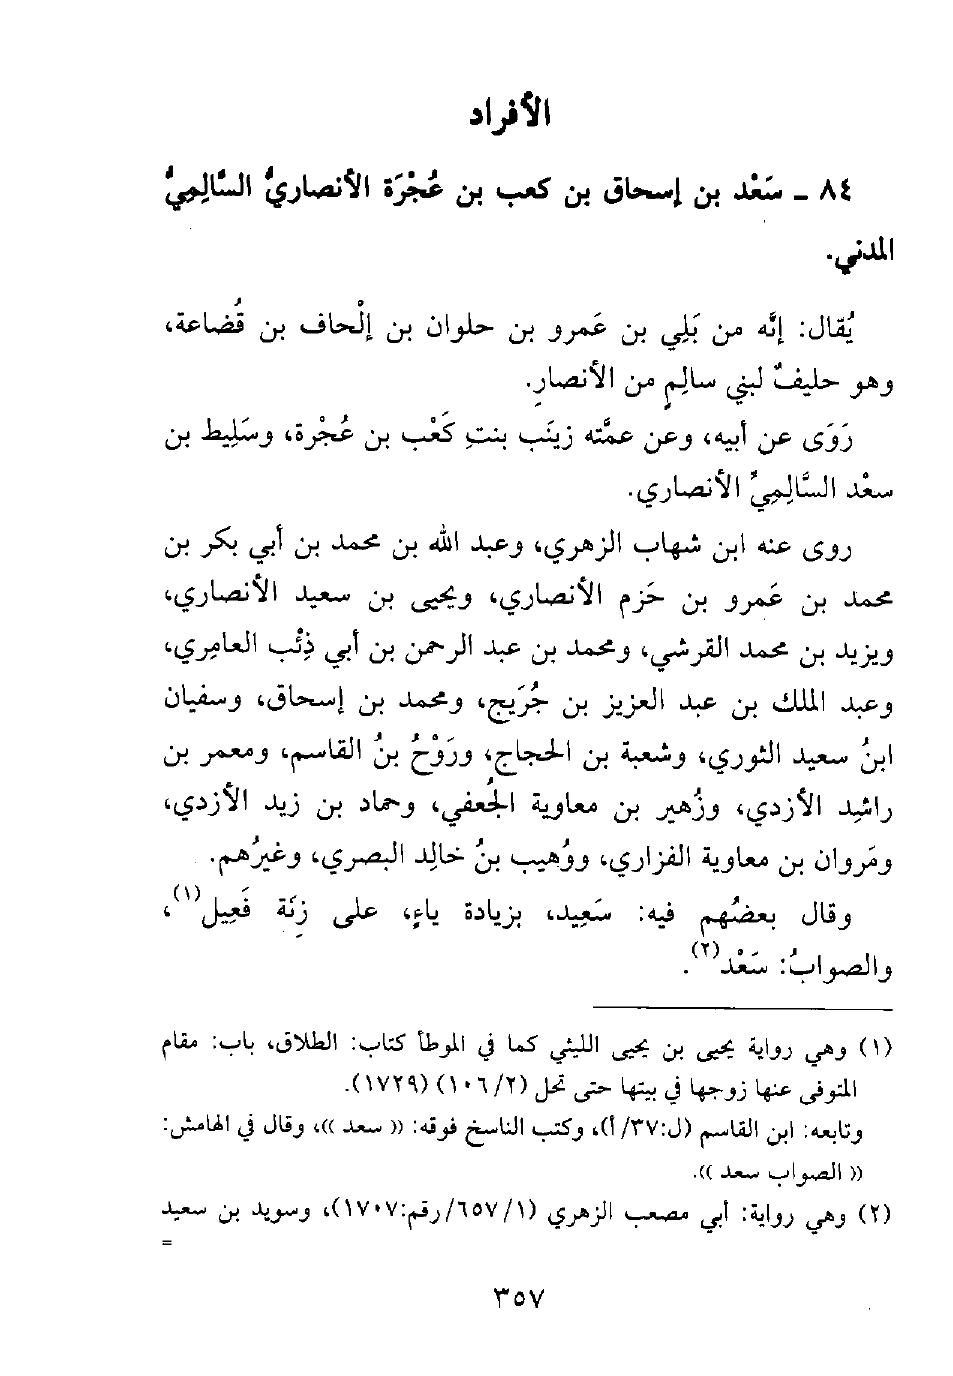 الأفراد
٨٤ ـ سَعْد بن إسحاق بن كعب بن عُجْرَة الأنصاريُّ السَّالِمِيُّ
المدني.
يُقال: إنَّه من بَلِي بن عَمرو بن حلوان بن إلْحاف بن قُضاعة،
وهو حليفٌ لبني سالِمٍ من الأنصارِ.
رَوَى عن أبيه، وعن عمَّته زينَب بنتِ كَعْب بن عُجْرة، وسَلِيط بن
سعْد السَّالِمِيِّ الأنصاري.
روى عنه ابن شهاب الزهري، وعبد الله بن محمد بن أبي بكر بن
محمد بن عَمرو بن حَزم الأنصاري، ويحيى بن سعيد الأنصاري،
ويزيد بن محمد القرشي، ومحمد بن عبد الرحمن بن أبي ذِئْب العامِري،
وعبد الملك بن عبد العزيز بن جُرَيج، ومحمد بن إسحاق، وسفيان
ابنُ سعيد الثوري، وشعبة بن الحجاج، ورَوْحُ بنُ القاسم، ومعمر بن
راشِد الأزدي، وزُهير بن معاوية الجُعفي، وحماد بن زيد الأزدي،
ومَروان بن معاوية الفزاري، ووُهيب بنُ خالِد البصري، وغيرُهم.
وقال بعضُهم فيه: سَعِيد، بزيادة ياءٍ، على زِنَة فَعِيل(١)،
والصوابُ: سَعْد(٢).
(١) وهي رواية يحيى بن يحيى الليثي كما في الموطأ كتاب: الطلاق، باب: مقام
المتوفى عنها زوجها في بيتها حتى تحل (١٠٦/٢) (١٧٢٩).
وتابعه: ابن القاسم (ل:٣٧/أ)، وكتب الناسخ فوقه: « سعد »، وقال في الهامش:
« الصواب سعد ».
(٢) وهي رواية: أبي مصعب الزهري (٦٥٧/١/رقم:١٧٠٧)، وسويد بن سعيد
=
٣٥٧